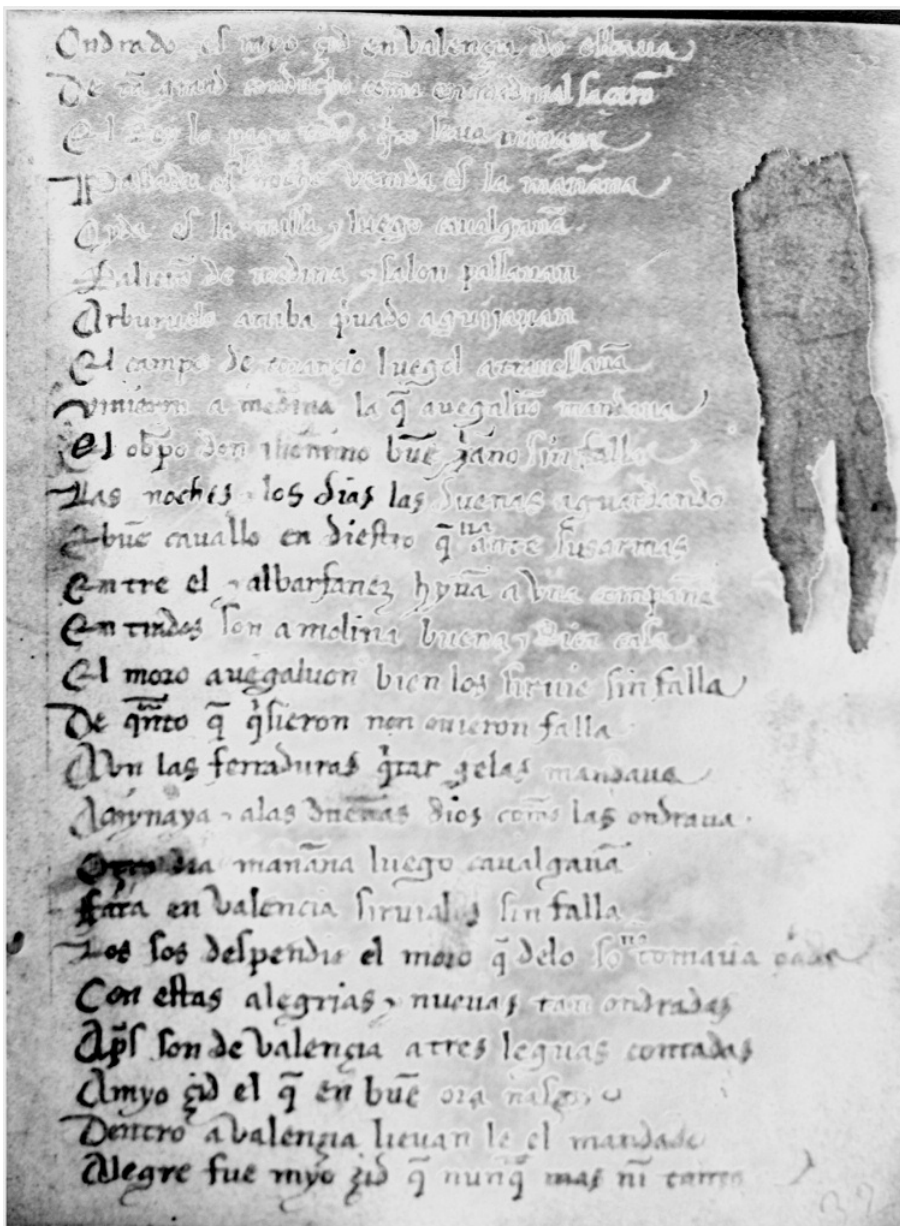 Ondrado es myo çid en valençia do estaua
De tã grand conducho como en medinal sacarõ
El Rey lo pago todo ⁊ q̃to seua minaya
Passada es noche venida es la mañana
Oyda es la missa ⁊ luego caualgauã
Salierõ de medina ⁊ salon passauan
Arburuelo arriba p̃uado aguijauan
El campo de torançio luegol atrauessauã
Vinieron a medina la q̃ auegaluõ mandaua
El obp̃o don iheronimo buẽ xp̃iano sin falla
Las noches ⁊ los dias las duenas aguardando
E buẽ cauallo en diestro q̃ ua ante sus armas
Entre el ⁊ albarfanez hyuã a vna compañã
Entrados son a molina buena ⁊ Rica casa
El moro auegaluon bien los siruie sin falla
De q̃nto q̃ q̃sieron non ouieron falla
Avn las ferraduras q̃tar gelas mandaua
Amynaya ⁊ alas duenas dios comõ las ondraua
Otro dia mañana luego caualgauã
Fata en valencia siruialos sin falla
Los sos despendie el moro q̃ delo so no tomaua nada
Con estas alegrias ⁊ nueuas tan ondradas
Ap̃s son de valençia a tres leguas contadas
A myo çid el q̃ en buẽ ora nasco
Dentro a valençia lieuan le el mandado
Alegre fue myo çid q̃ nunq̃ mas nĩ tanto